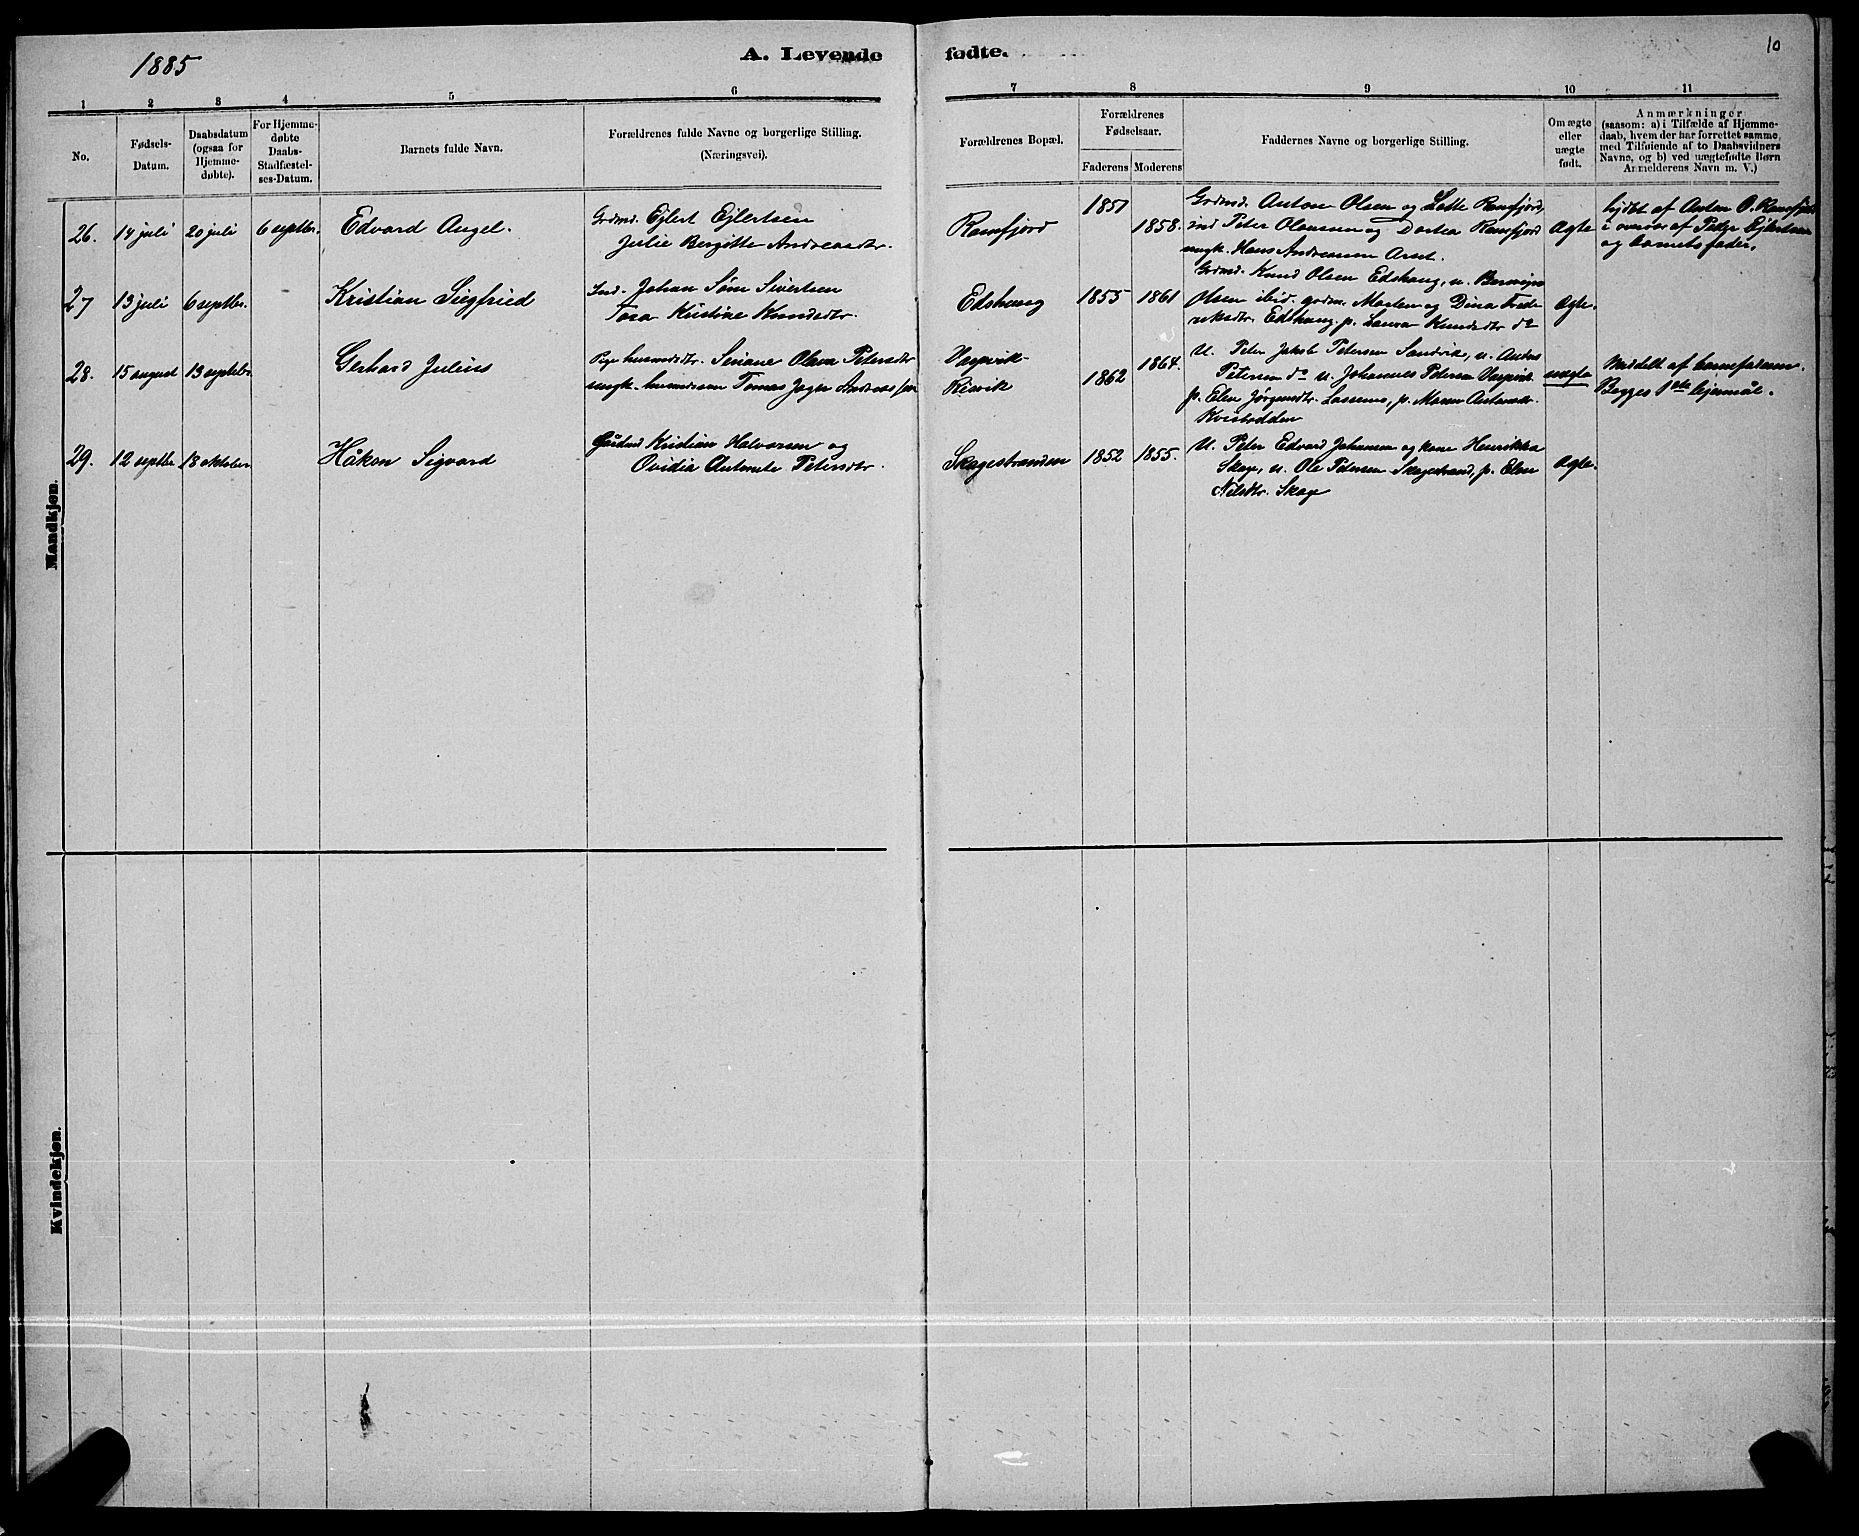 1885
A. Levende fødte.
10
1 2 3 4 5 6 7 8 9 10 11
No.
Fødsels-
Datum.
Daabsdatum
(ogsaa for
Hjemme-
døbte).
For Hjemme-
døbte
Daabs-
Stadfæstel-
ses-Datum.
Barnets fulde Navn.
Forældrenes fulde Navne og borgerlige Stilling.
(Næringsvei).
Forældrenes Bopæl.
Forældrenes
Fødselsaar.
Faderens Moderens
Faddernes Navne og borgerlige Stilling.
Om ægte
eller
uægte
født.
Anmærkninger
(saasom: a) i Tilfælde af Hjemme-
daab, hvem der har forrettet samme,
med Tilføiende af to Daabsvidners
Navne, og b) ved uægtefødte Børn
Anmelderens Navn m. V.)
Mandkjøn.
26. 14 juli 20 juli 6 septbr. Edvard Angel.
Grdmd. Ejlert Ejlertsen
Julie Bergitte Andreasdtr.
Ramfjord
1851 1858.
Grdmd. Anton Olsen og Lotte Ramfjord,
ind Peter Olausen og Dortea Ramfjord
ungk. Hans Andreassen Arset.
Ægte
hjdbt af Anton O. Ramfjord
i overvær af Ejlertsen
og barnets fader.
27 13 juli 6 septbr. Kristian Siegfried
Ind. Johan Søm Sivertsen
Tora Kristine Knudsdtr.
Edshaug
1855 1861
Grdmd. Knud Olsen Edshaug, u.
Olsen ibid. grdm. Morten og Dina Frede-
riksdtr. Edshaug. p. Laura Knudsdtr do
Ægte.
28. 15 august 13 septbr. Gerhard Julius
Pige husmdsdtr. Seriane Olava Petersdtr
ungk. husmdssøn Tomas Jæger Andreassen
Varpvik
Risvik
1862 1864.
U. Peter Jakob Petersen Sandvik, u.
Petersen do u. Johannes Petersen Varpvik
p. Elen Jørgensdtr. p. Maren
uægte
Meddelt af barnefaderen.
Begges 1ste lejermål.
29. 12 septbr 18 oktober Håkon Sigvard
Gårdmd Kristian Halvorsen og
Ovidia Antonete Petersdtr.
Skagestranden
1852 1855.
U. Peter Edvard Johansen og kone Henrikka
Skage, u. Ole Petersen Skagestrand, p. Elen
Nilsdtr. Skage
Ægte.
Kvindekjøn.